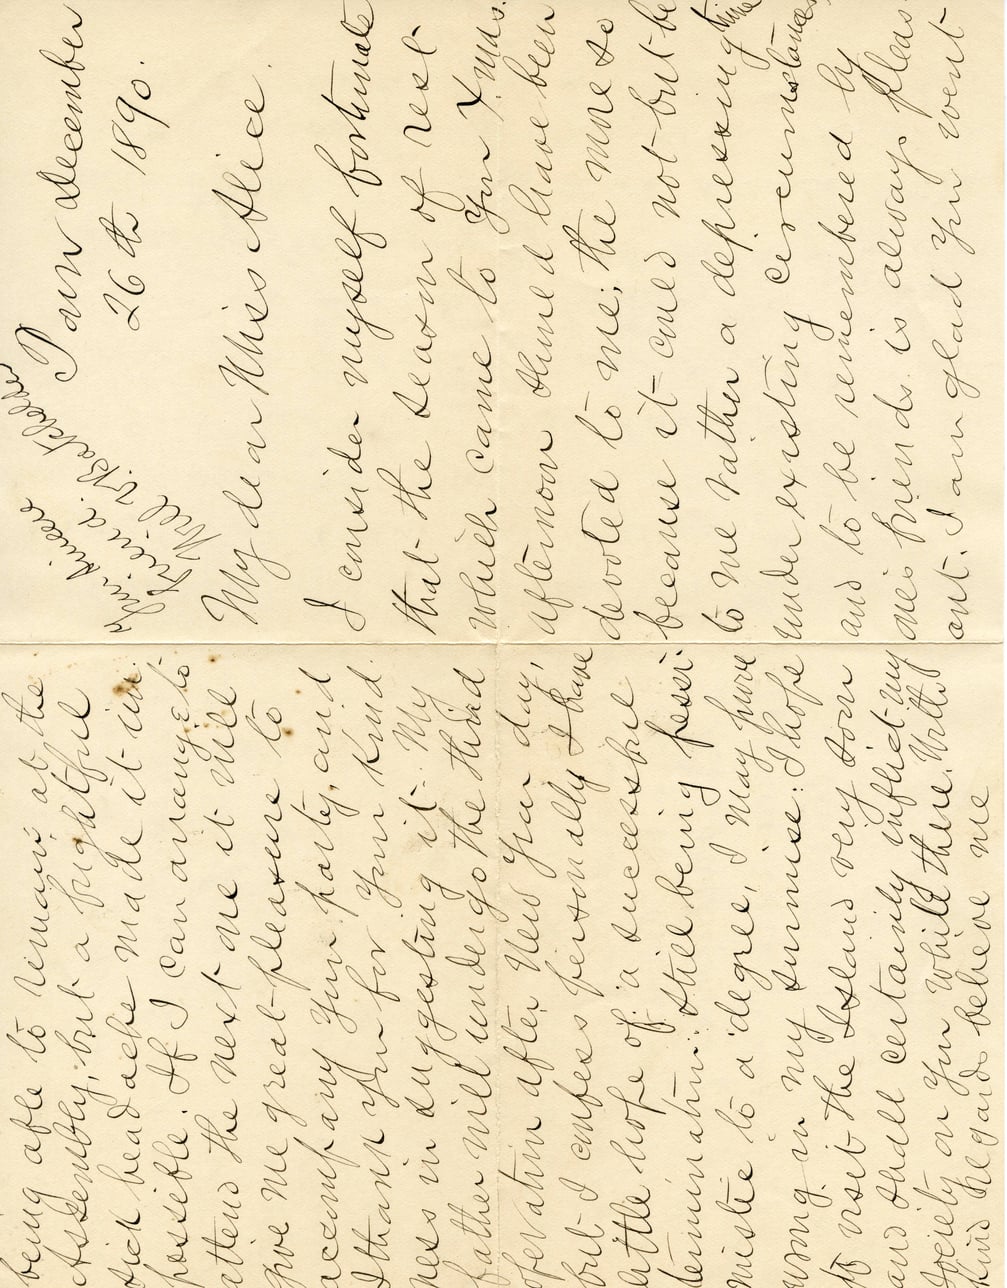 Pawn December
26th 1890.
My dear Miss Alice.
I consider myself fortunate
that the season of rest
which came to you Xmas.
afternoon should have been
devoted to me; the more so
because it could not but be
to me rather a depressing time
under existing circumstances,
and to be remembered by
ones friends is always pleas-
ant. I am glad you went
being able to remain; at the
Assembly, but a frightful
sick headache made it im-
possible. If I can arrange to
attend the next one it will
give me great pleasure to
accompany your party, and
I thank you for your kind
ness in suggesting it. My
father will undergo the third
operation after New Year day,
but I confess personally I have
little hope of a successful
termination: still being pessi-
mistic to a degree, I may prove
wrong in my surmise: I hope
to visit the Island very soon
and shall certainly inflict my
society on you while there. With
kind regards believe me
Your sincere
friend.
Will V. Batchelder